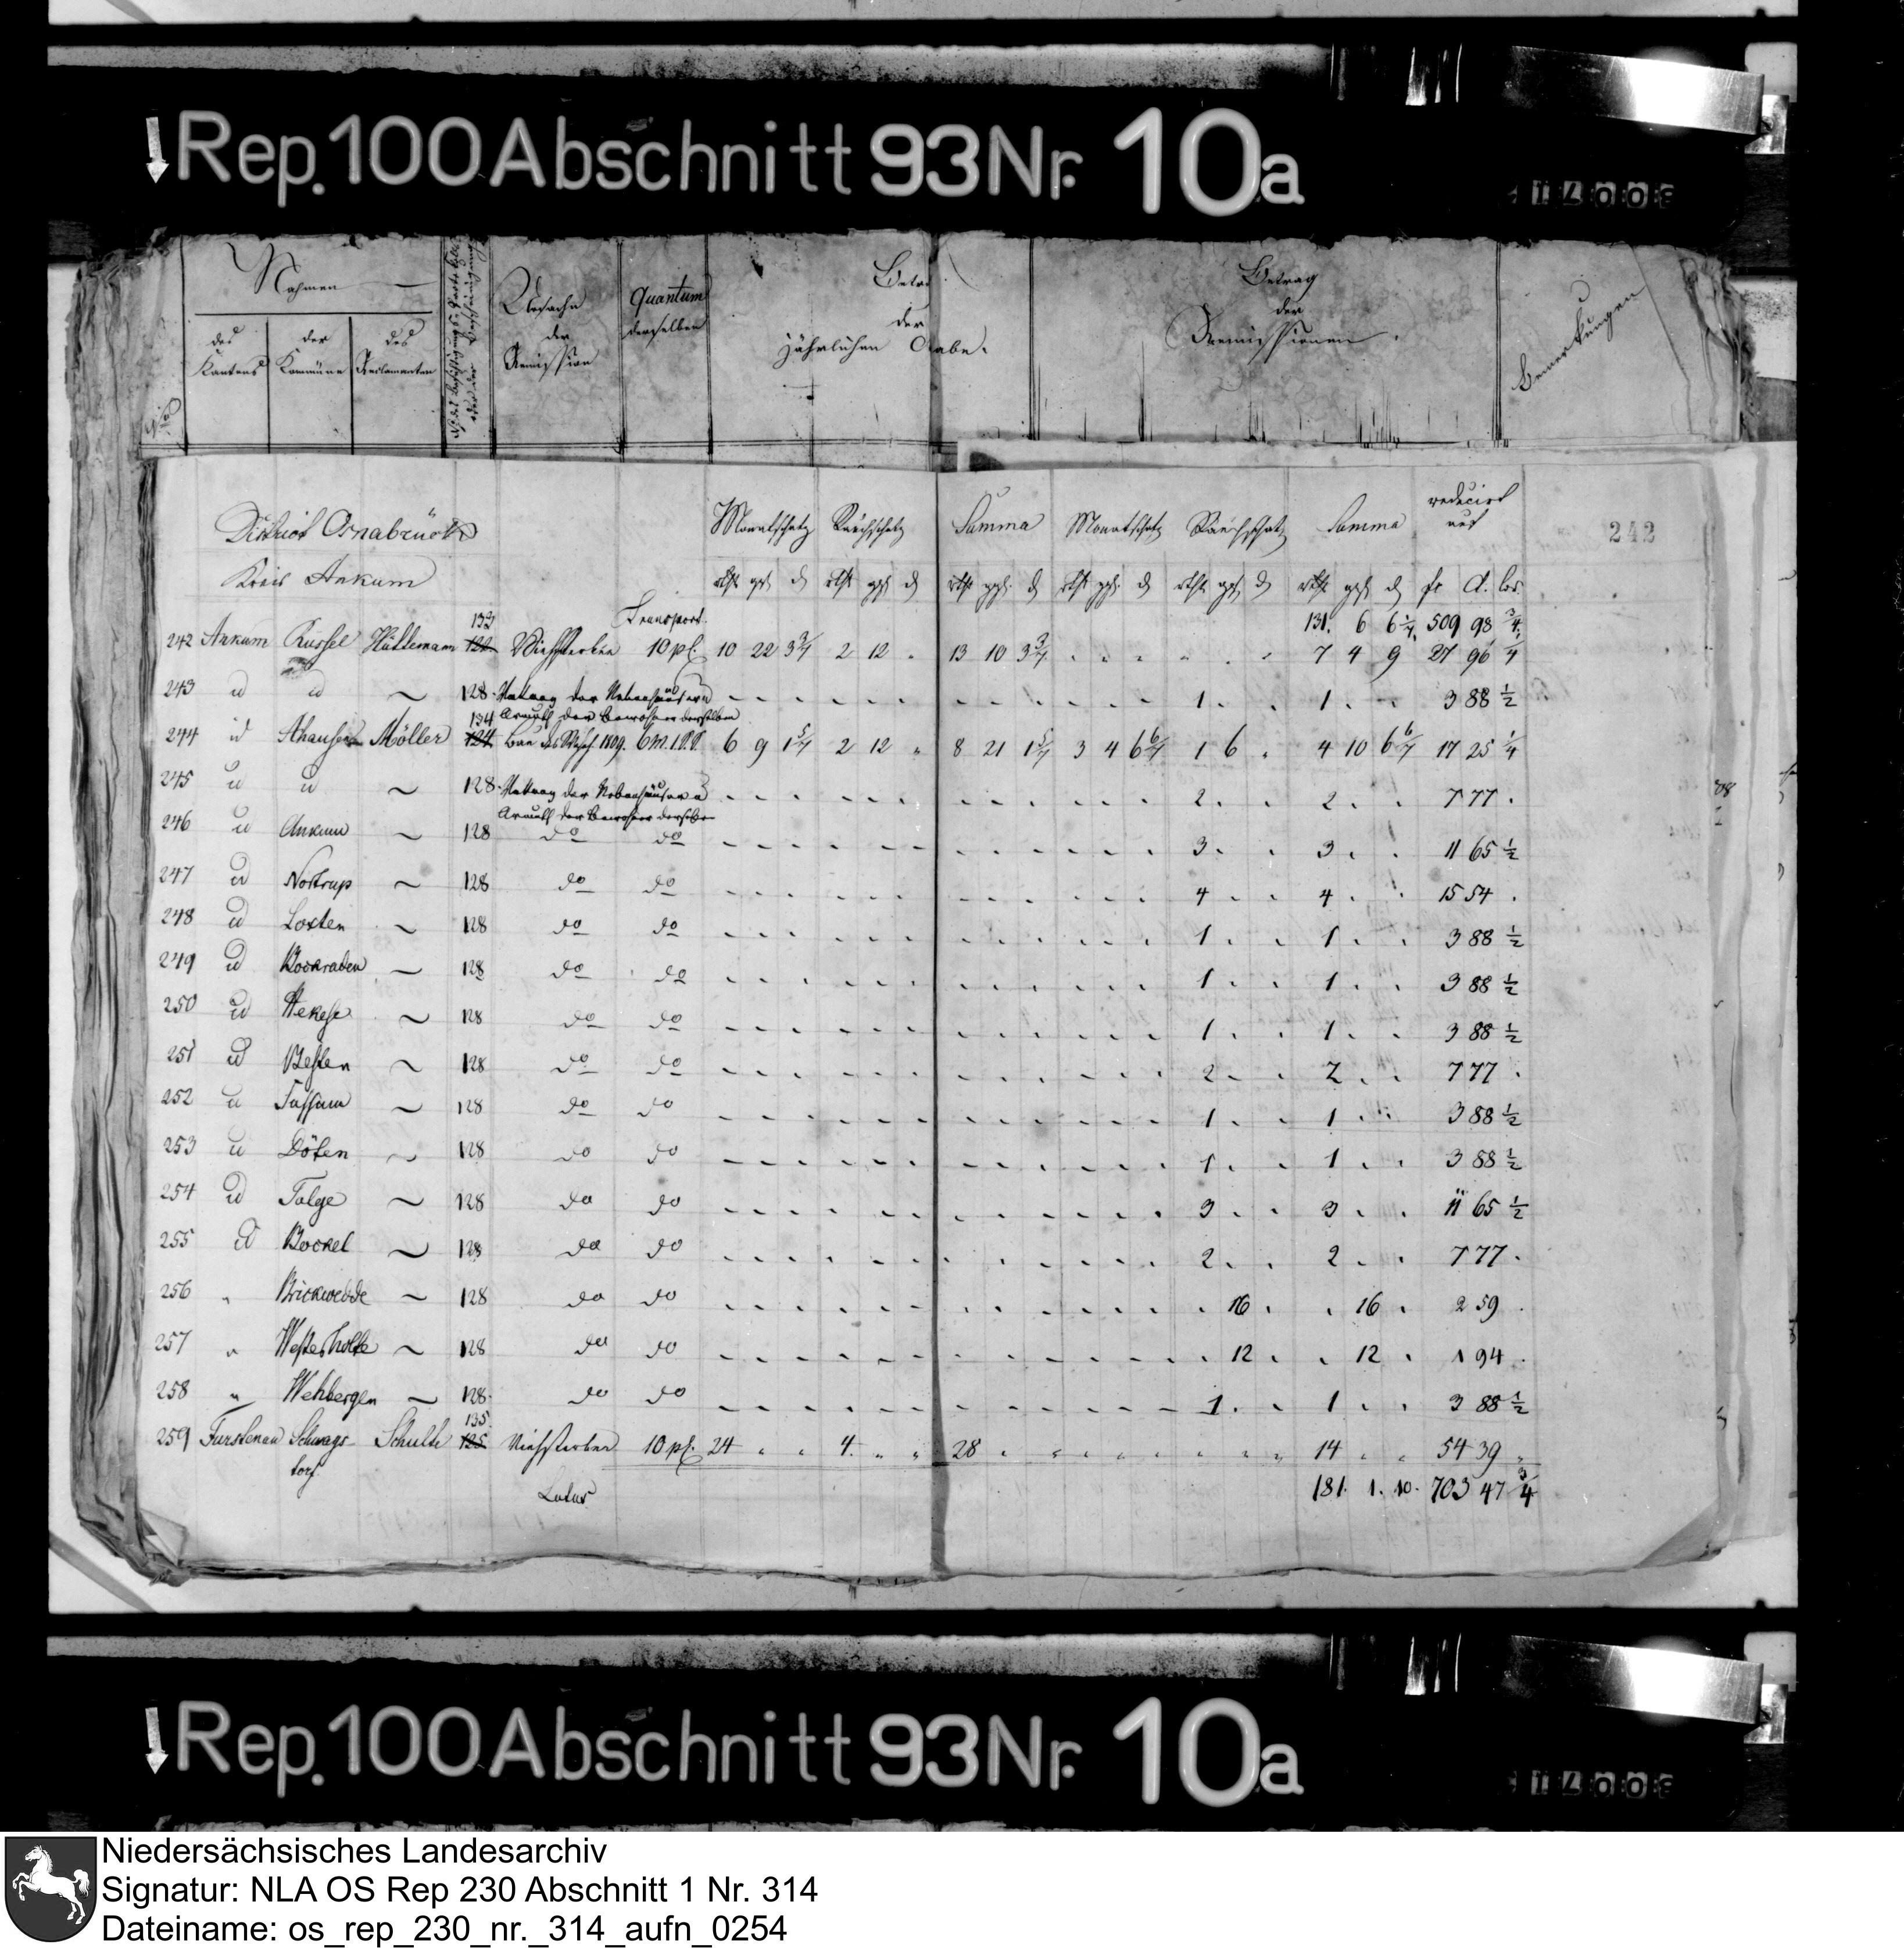 Rep. 100 Abschnitt 93 Nr. 10a
Nahmen
des Kantons
der Kommüne
des Reclamanten
Ursache der Remission
Quantum derselben
der jährlichen Abgabe.
Betrag der Remissionen.
Bemerkungen
242
District Osnabrück
Kreis Ankum
Monatschatz Rauchschatz Summa Monatschatz Rauchschatz Summa reducirt auf
rthlr ggr d rthlr ggr d rthlr ggr d rthlr ggr d rthlr ggr d rthlr ggr d fr
Transport. 131. 6 6 1/7 509 98 3/4
242 Ankum Russel Hüttemann 133 122 Viehsterben 10 pC. 10 22 3 3/7 2 12 . 13 10 3 3/7 7 4 9 27 96 1/4
243 id id ~ 128. Nutzung der Nebenhäuser u Armuth der Bewohner derselben 1. . 1. . 3 88 1/2
244 id Ahausen Möller 134 124 1809. 6 9 1 5/7 2 12 " 8 21 1 5/7 3 4 6 6/7 1 6 . 4 10 6 6/7 17 25 1/4
245 id id ~ 128. Nutzung der Nebenhäuser u Armuth der Bewohner derselben 2. . 2. . 7 77 .
246 id Ankum ~ 128 do do 3. . 3. . 11 65 1/2
247 id Nortrup ~ 128 do do 4 . . 4 . . 15 54 .
248 id Loxten ~ 128 do do 1. . 1. . 3 88 1/2
249 id Bockraden ~ 128 do do 1. . 1. . 3 88 1/2
250 id Hekese ~ 128 do do 1. . 1. . 3 88 1/2
251 id Besten ~ 128 do do 2. . 2. . 7 77 .
252 id Tüssum ~ 128 do do 1. . 1. . 3 88 1/2
253 id Döten ~ 128 do do 1. . 1. . 3 88 1/2
254 id Talge ~ 128 do do 3. . 3. . 11 65 1/2
255 id Bockel ~ 128 do do 2. . 2. . 7 77 .
256 " Brickwedde ~ 128 do do . 16 . . 16 . 2 59 .
257 " Westerholte ~ 128 do do . 12 . . 12 . 1 94 .
258 " Wehbergen ~ 128. do do 1. . 1 . . 3 88 1/2
259 Fürstenau Schwagstorf Schulte 135. 125 Viehsterben 10 pC. 24 . . 4. " " 28 14 . . 54 39 "
Latus 181. 1. 10. 703 47 3/4
Rep. 100 Abschnitt 93 Nr. 10a
Niedersächsisches Landesarchiv
Signatur: NLA OS Rep 230 Abschnitt 1 Nr. 314
Dateiname: os_rep_230_nr._314_aufn_0254